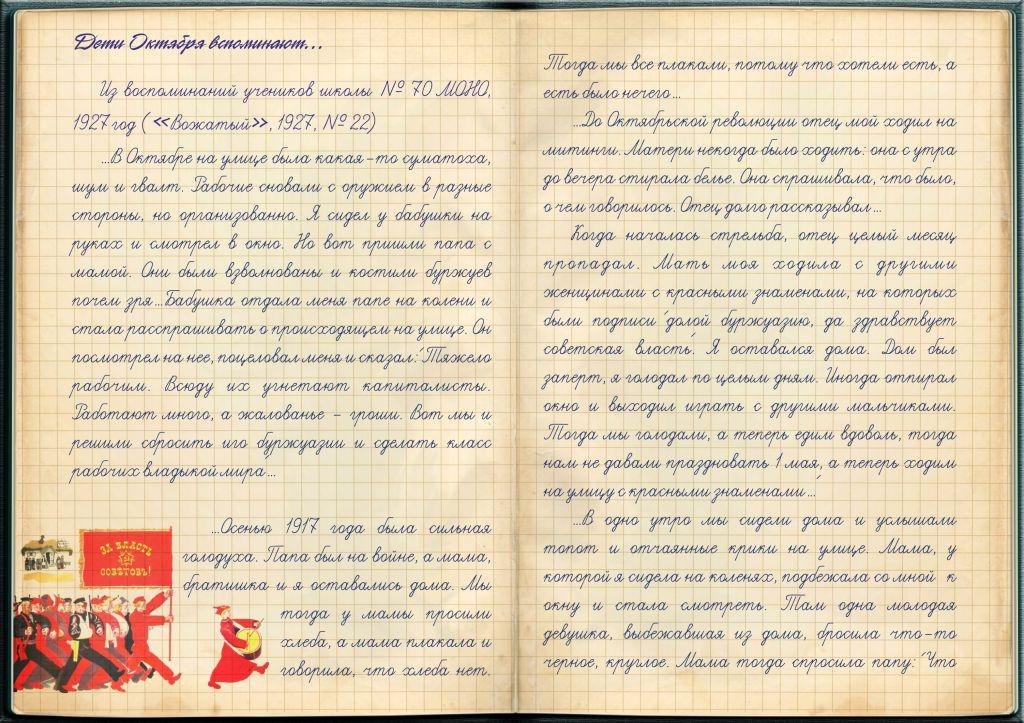 Дети Октября вспоминают...
Из воспоминаний учеников школы № 70 МОНО,
1927 год ( «Вожатый», 1927, № 22)
...В Октябре на улице была какая-то суматоха,
шум и гвалт. Рабочие сновали с оружием в разные
стороны, но организованно. Я сидел у бабушки на
руках и смотрел в окно. Но вот пришли папа с
мамой. Они были взволнованы и костили буржуев
почем зря...Бабушка отдала меня папе на колени и
стала расспрашивать о происходящем на улице. Он
посмотрел на нее, поцеловал меня и сказал: "Тяжело
рабочим. Всюду их угнетают капиталисты.
Работают много, а жалованье – гроши. Вот мы и
решили сбросить иго буржуазии и сделать класс
рабочих владыкой мира"...
...Осенью 1917 года была сильная
голодуха. Папа был на войне, а мама,
братишка и я оставались дома. Мы
тогда у мамы просили
хлеба, а мама плакала и
говорила, что хлеба нет.
ЗА ВЛАСТЬ
СОВЕТОВЪ!
Тогда мы все плакали, потому что хотели есть, а
есть было нечего...
...До Октябрьской революции отец мой ходил на
митинги. Матери некогда было ходить: она с утра
до вечера стирала белье. Она спрашивала, что было,
о чем говорилось. Отец долго рассказывал...
Когда началась стрельба, отец целый месяц
пропадал. Мать моя ходила с другими
женщинами с красными знаменами, на которых
были подписи "долой буржуазию, да здравствует
советская власть". Я оставался дома. Дом был
заперт, я голодал по целым дням. Иногда отпирал
окно и выходил играть с другими мальчиками.
Тогда мы голодали, а теперь едим вдоволь, тогда
нам не давали праздновать 1 мая, а теперь ходим
на улицу с красными знаменами"...
...В одно утро мы сидели дома и услышали
топот и отчаянные крики на улице. Мама, у
которой я сидела на коленях, подбежала со мной к
окну и стала смотреть. Там одна молодая
девушка, выбежавшая из дома, бросила что-то
черное, круглое. Мама тогда спросила папу: "Что